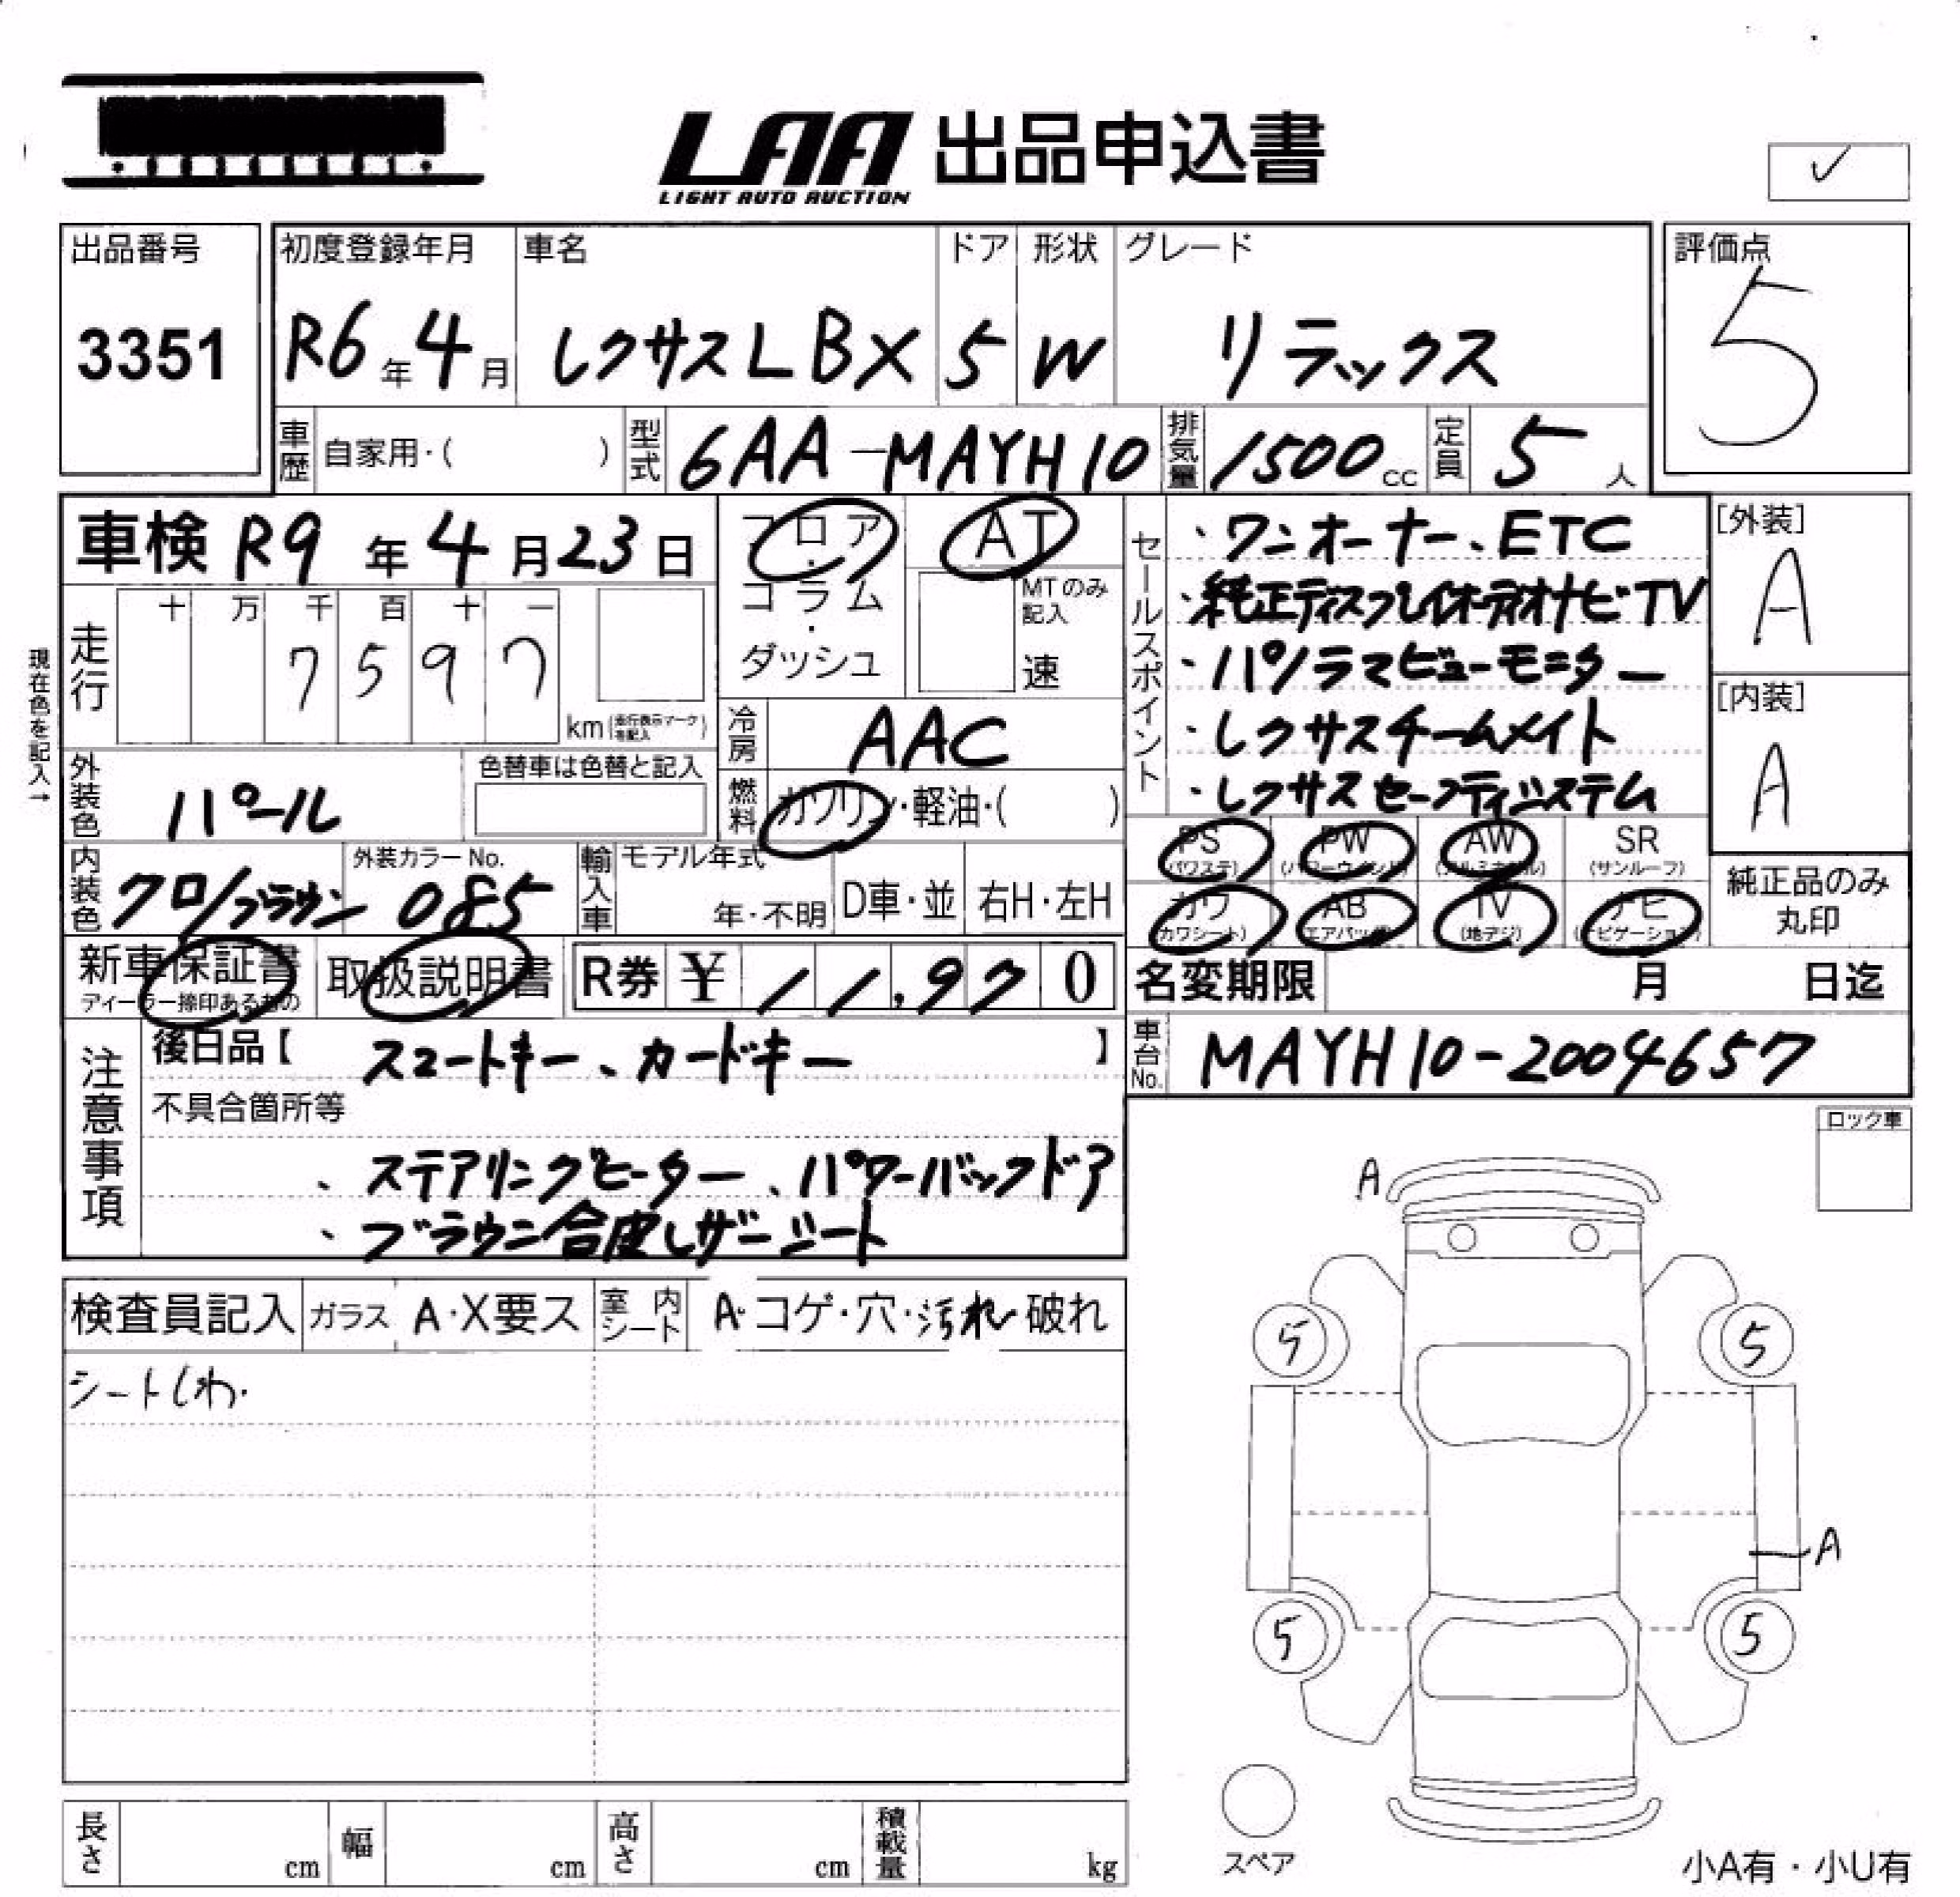 LAA 出品申込書
LIGHT AUTO AUCTION
✓
出品番号
3351
初度登録年月
R6年4月
車名
レクサスLBX
ドア
5
形状
W
グレード
リラックス
評価点
5
車歴 自家用・( )
型式 6AA-MAYH10
排気量 1500cc
定員 5人
車検 R9年4月23日
フロア・コラム・ダッシュ
AT
MTのみ記入
速
セールスポイント
・ワンオーナー、ETC
・純正ディスプレイオーディオナビTV
・パノラマビューモニター
・レクサスチームメイト
・レクサスセーフティシステム
[外装]
A
[内装]
A
現在色を記入→
走行
十 万 千 百 十 一
7 5 9 7
km(走行表示マークを記入)
冷房 AAC
燃料 ガソリン・軽油・( )
外装色 パール
色替車は色替と記入
内装色 クロ/ブラウン
外装カラーNo.
085
輸入車
モデル年式
年・不明
D車・並
右H・左H
PS (パワステ)
PW (パワーウインド)
AW (アルミホイル)
SR (サンルーフ)
カワ (カワシート)
AB (エアバッグ)
TV (地デジ)
ナビ (ナビゲーション)
純正品のみ丸印
新車保証書
ディーラー捺印あるもの
取扱説明書
R券 ¥ 11,970
名変期限 月 日迄
車台No. MAYH10-2004657
注意事項
後日品【 スマートキー、カードキー 】
不具合箇所等
、ステアリングヒーター、パワーバックドア
、ブラウン合皮レザーシート
ロック車
検査員記入
ガラス A・X要ス
室内シート A・コゲ・穴・汚れ・破れ
シートしわ.
A
5
5
A
5
5
スペア
長さ cm
幅 cm
高さ cm
積載量 kg
小A有・小U有